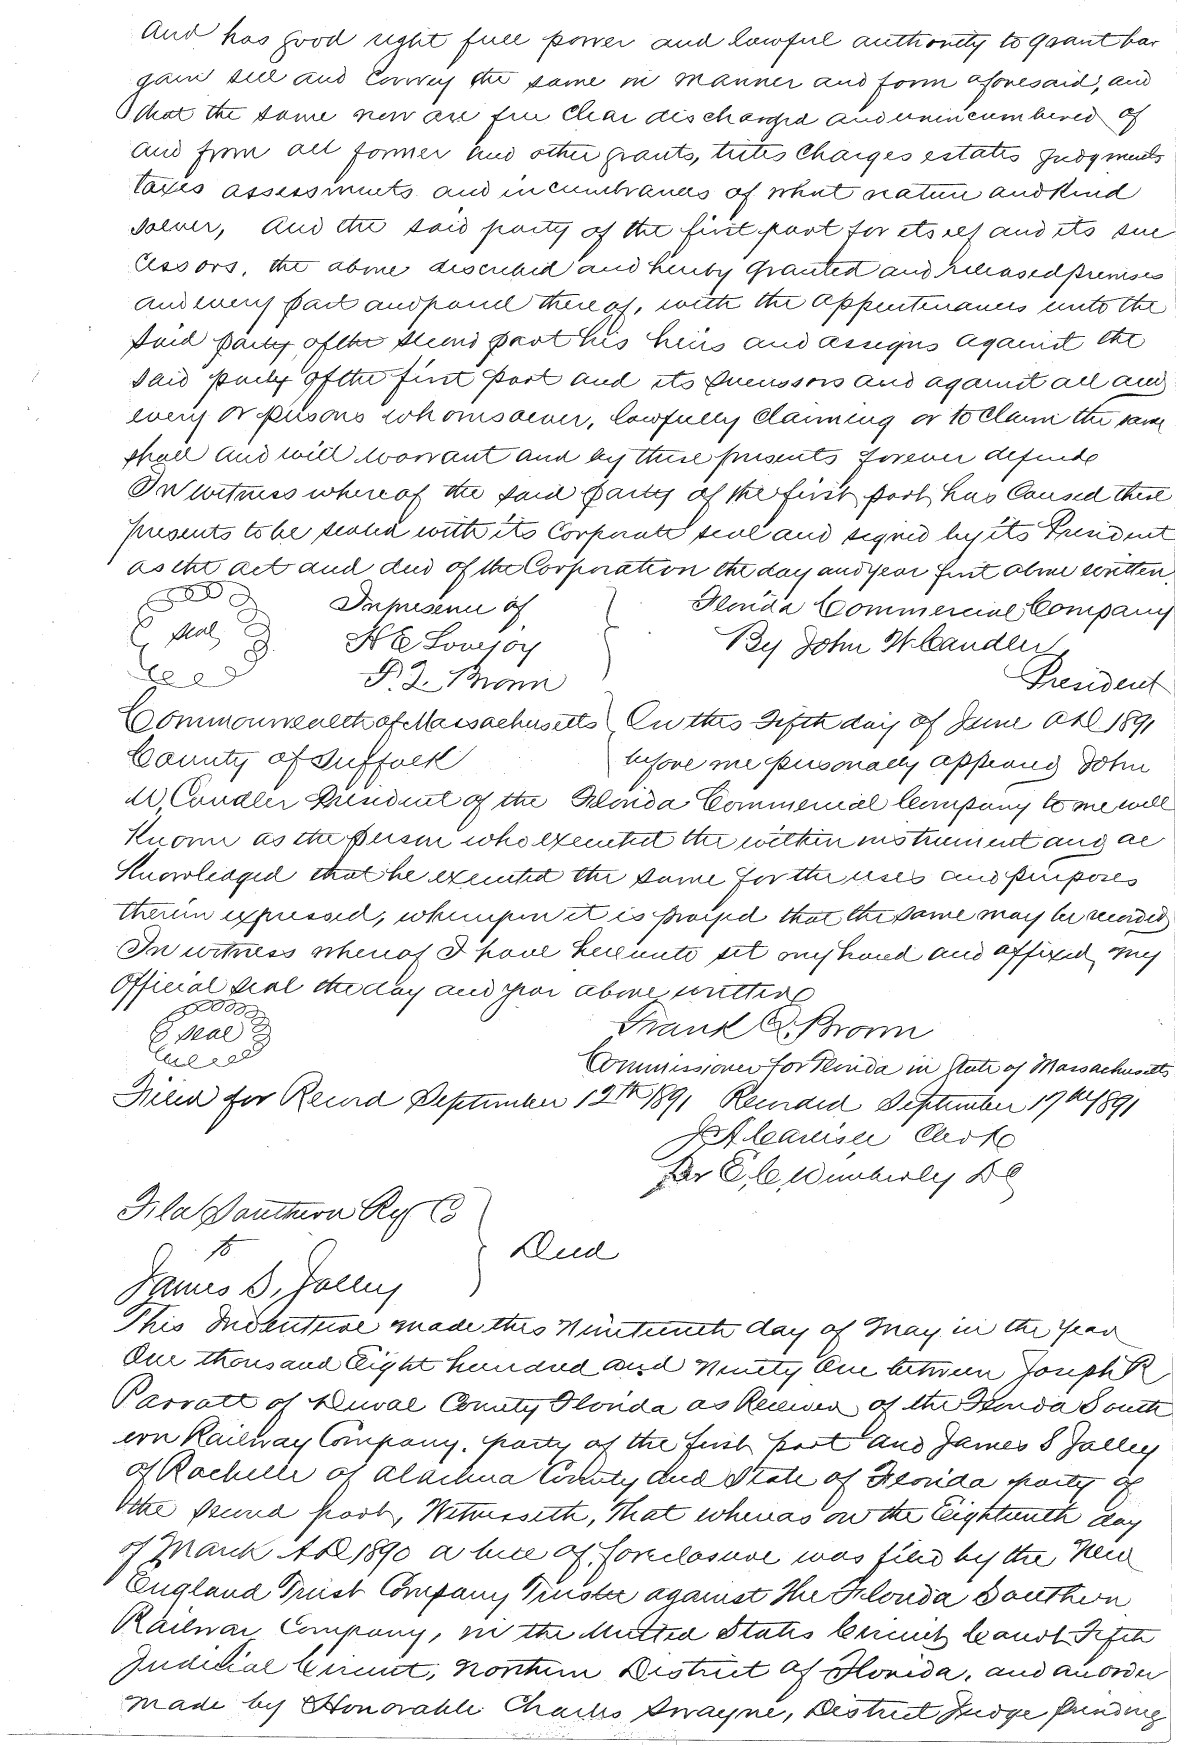 And has good right full power and lawful authority to grant bar
gain sell and convey the same in manner and form aforesaid; and
that the same now are free clear discharged and unincumbered of
and from all former and other grants, titles charges estates judgments
taxes assessments and incumbrances of what nature and kind
soever, And the said party of the first part for itself and its suc
cessors, the above described and hereby granted and released premises
and every part and parcel thereof, with the appurtenances unto the
said party of the second part his heirs and assigns against the
said party of the first part and its successors and against all and
every or persons whomsoever, lawfully claiming or to claim the same
shall and will warrant and by these presents forever defend
In witness whereof the said party of the first part has caused these
presents to be sealed with its Corporate seal and signed by its President
as the act and deed of the Corporation the day and year first above written
Seal In presence of Florida Commercial Company
H E Lovejoy By John W Candler
F. Q. Brown President
Commonwealth of Massachusetts On this Fifth day of June AD 1891
County of Suffolk before me personally appeared John
W. Candler President of the Florida Commercial Company to me well
Known as the person who executed the within instrument and ac
Knowledged that he executed the same for the uses and purposes
therein expressed, whereupon it is prayed that the same may be recorded
In witness whereof I have hereunto set my hand and affixed my
Official seal the day and year above written
Seal Frank Q. Brown
Commissioner for Florida in State of Massachusetts
Filed for Record September 12th 1891 Recorded September 17th 1891
J A Carlisle Clerk
Per E. C. Wimberly DC
Fla Southern Ry Co
to Deed
James S. Jolley
This Indenture made this Nineteenth day of May in the year
One thousand Eight hundred and Ninety One between Joseph R
Parrott of Duval County Florida as Receiver of the Florida South
ern Railway Company. party of the first part and James S Jolley
of Rochelle of Alachua County and State of Florida party of
the second part, Witnesseth, That whereas on the Eighteenth day
of March AD 1890 a bill of foreclosure was filed by the New
England Trust Company Trustee against the Florida Southern
Railway Company, in the United States Circuit Court Fifth
Judicial Circuit, Northern District of Florida, and an order
made by Honorable Charles Swayne, District Judge pending